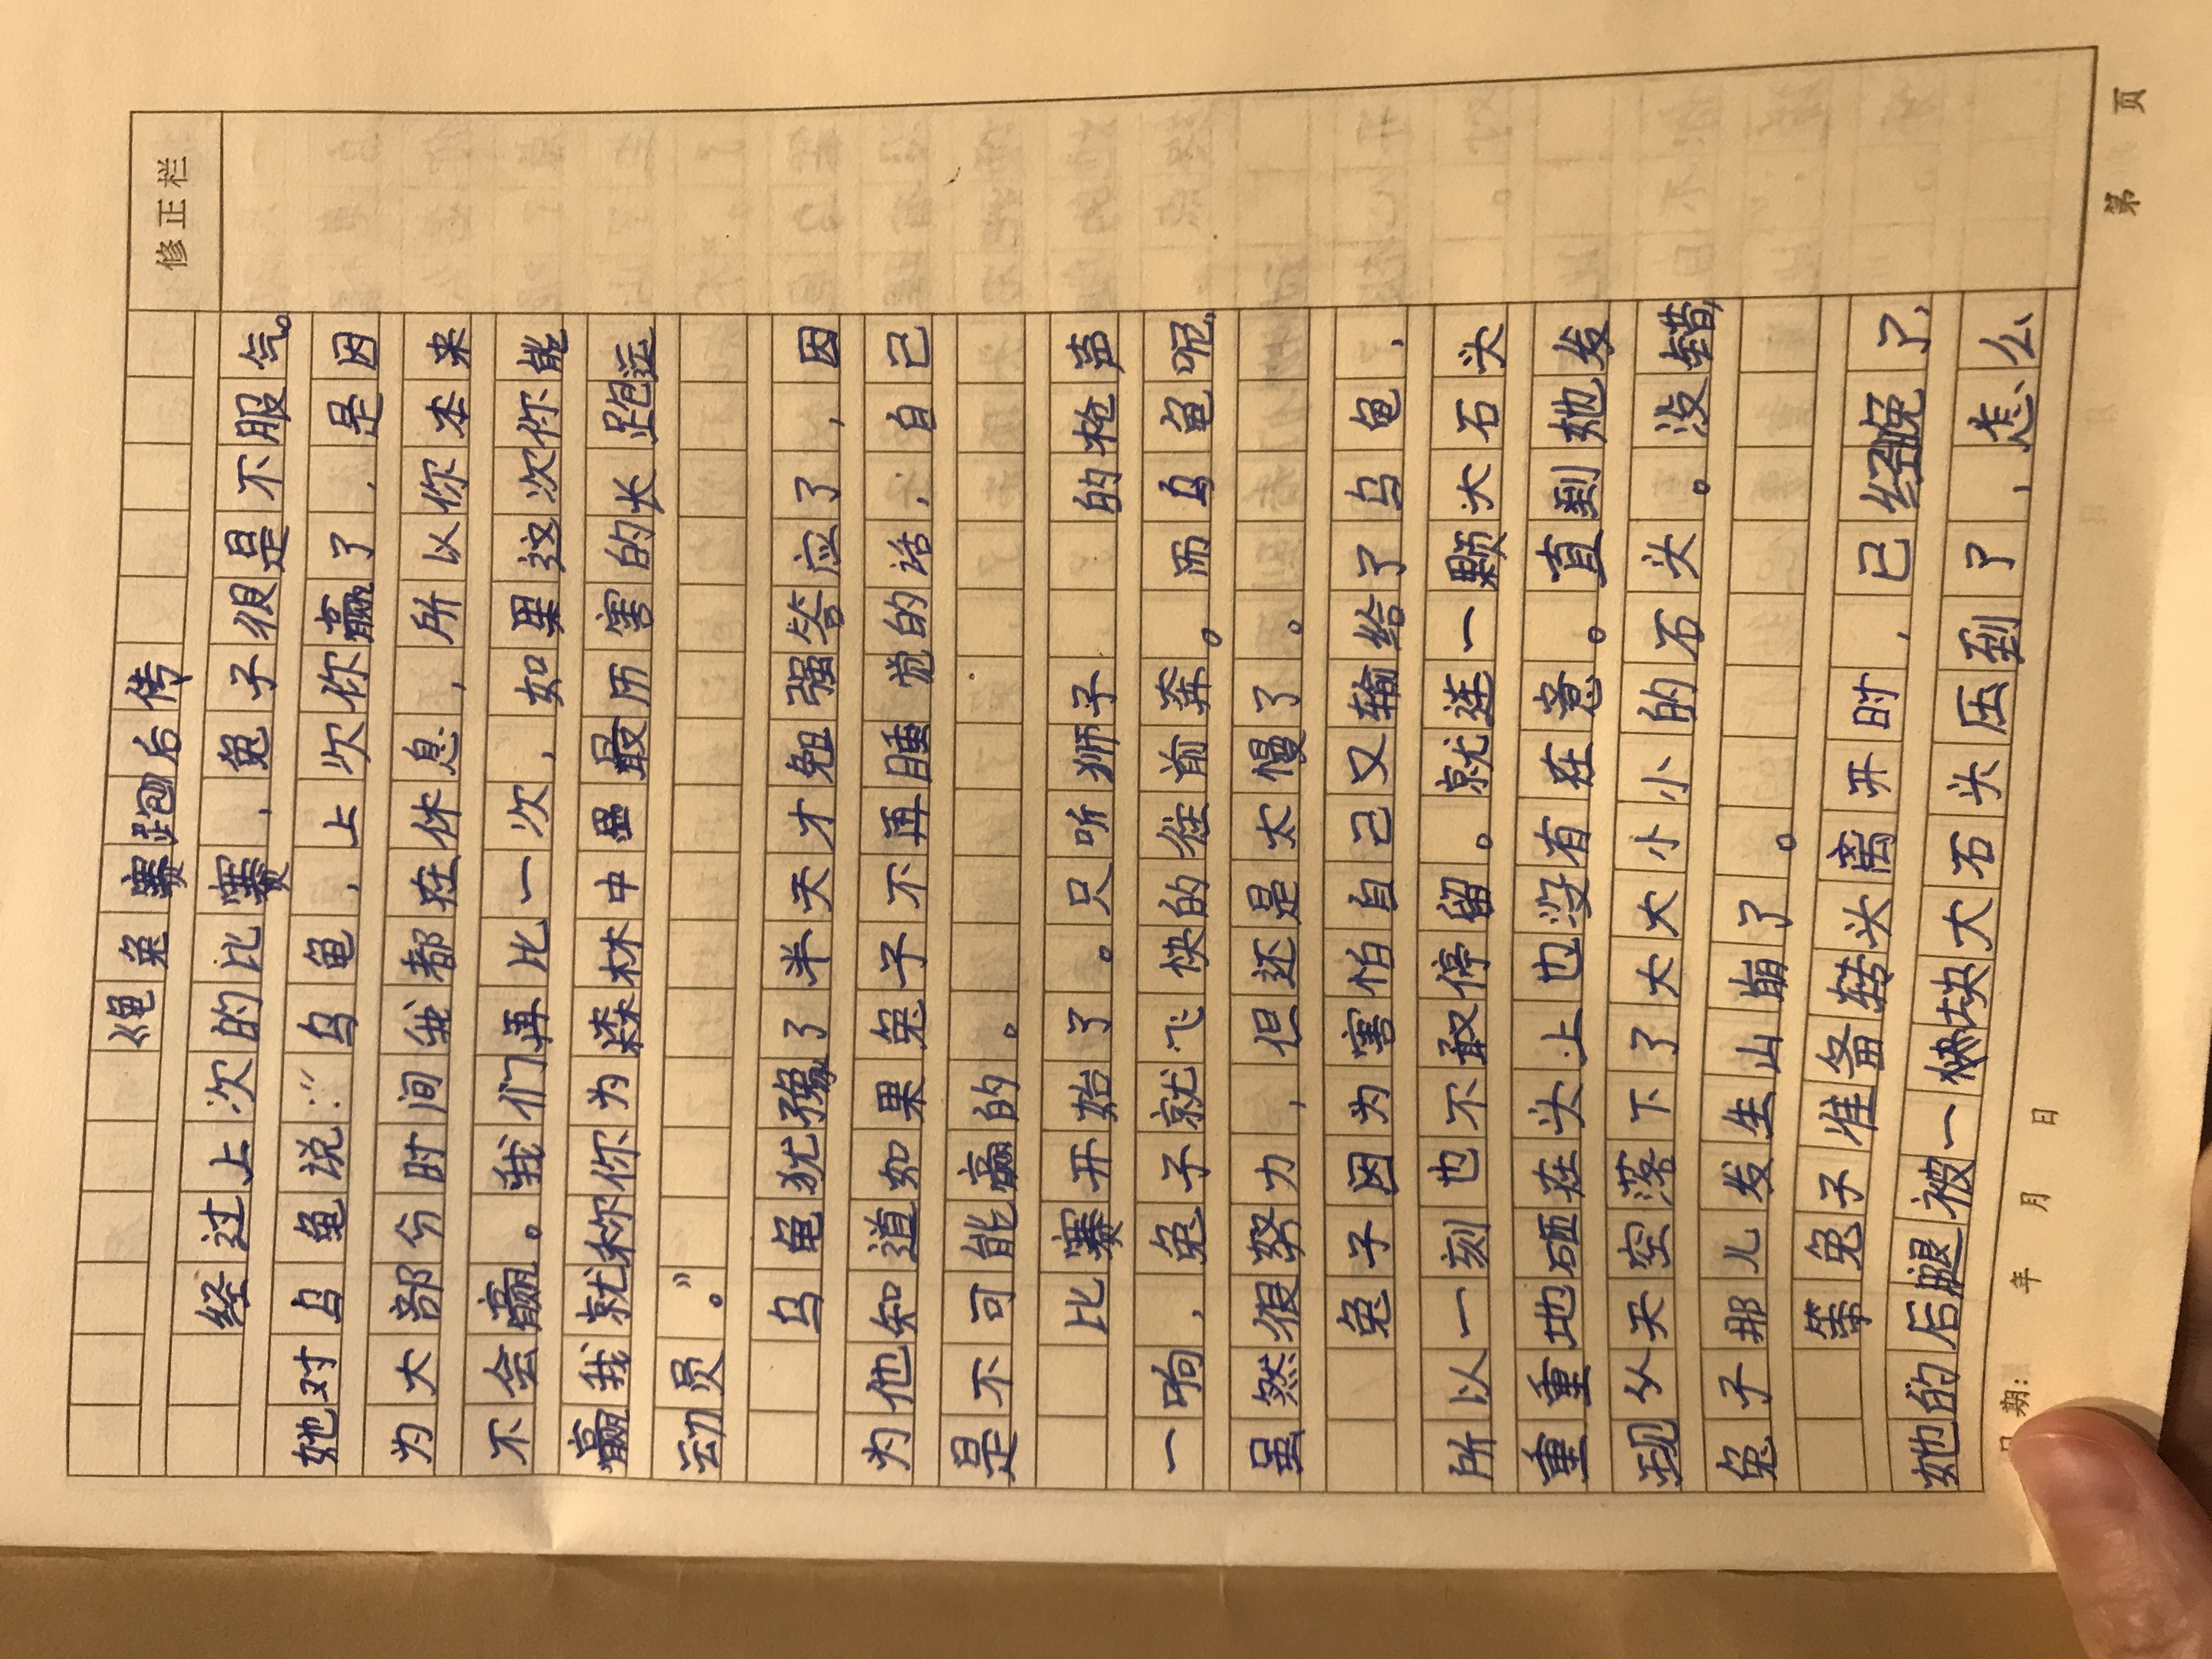 修正栏
《龟兔赛跑后传
经过上次的比赛，兔子很是不服气。
她对乌龟说：“乌龟，上次你赢了，是因
为大部分时间我都在休息，所以你本来
不会赢。我们再比一次，如果这次你能
赢我就称你为森林中最历害的长跑运
动员。”
乌龟犹豫了半天才勉强答应了，因
为他知道如果兔子不再睡觉的话，自己
是不可能赢的。
比赛开始了。只听狮子的枪声
一响，兔子就飞快的往前奔。而乌龟呢，
虽然很努力，但还是太慢了。
兔子因为害怕自己又输给了乌龟，
所以一刻也不敢停留。就连一颗大石头
重重地砸在头上也没有在意。直到她发
现从天空落下了大大小小的石头。没错，
兔子那儿发生山崩了。
等兔子准备转头离开时，已经晚了，
她的后腿被一块大石头压到了，怎么
日期： 年 月 日
第 页